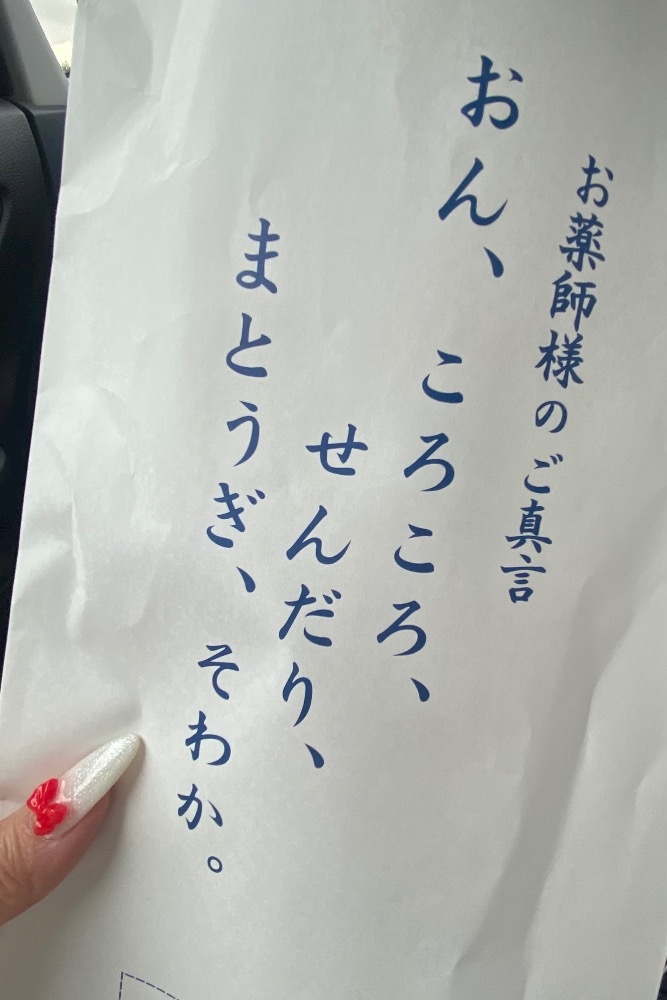 お薬師様のご真言
おん、ころころ、
せんだり、
まとうぎ、そわか。